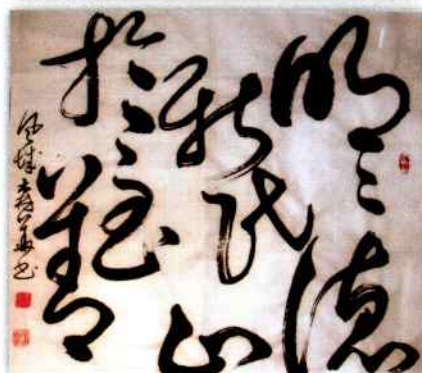 明〻德
新民止
於至善